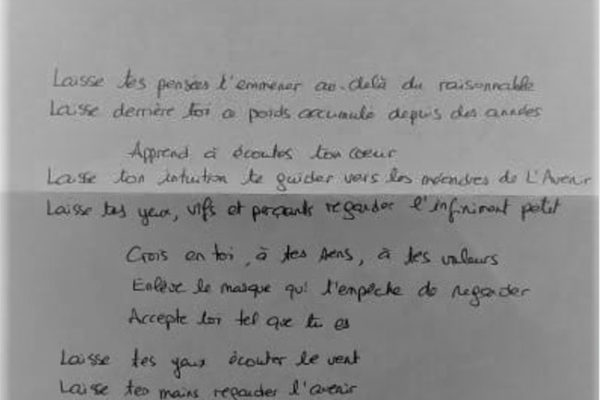 Laisse tes pensées t'emmener au-delà du raisonnable
Laisse derrière toi ce poids accumulé depuis des années
Apprend à écouter ton coeur
Laisse ton intuition te guider vers les méandres de L'Avenir
Laisse tes yeux, vifs et perçants regarder l'infiniment petit
Crois en toi, à tes sens, à tes valeurs
Enlève le masque qui t'empêche de regarder
Accepte toi tel que tu es
Laisse tes yeux écouter le vent
Laisse tes mains regarder l'avenir